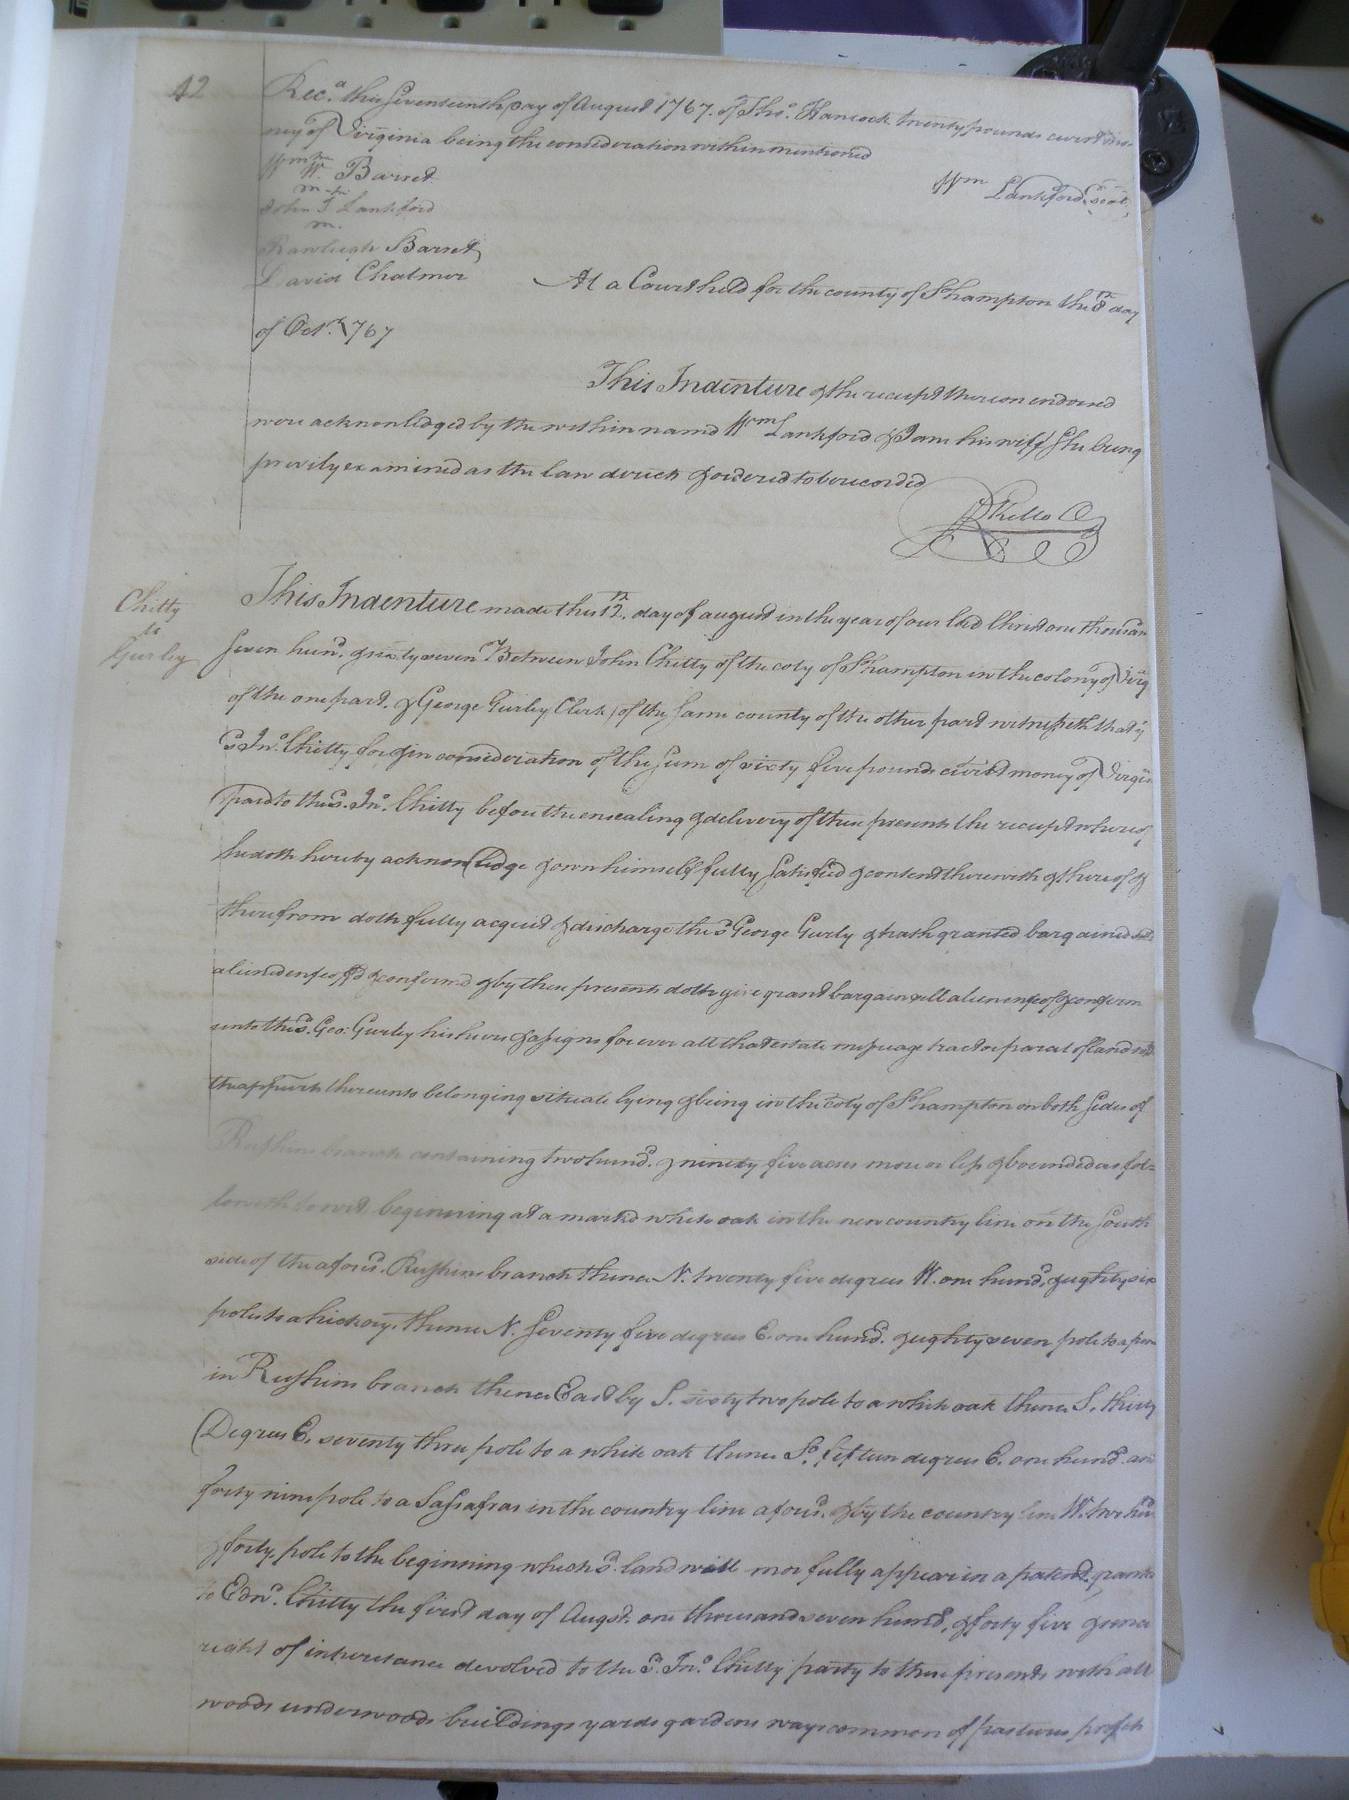 42
Rec.d this Seventeenth day of August 1767. of Tho.s Hancock twenty pounds curr.t mo=
ney of Virginia being the consideration within mentioned
W. Barret
Wm Lankford, seal,
John I Lankford
Rawleigh Barret,
David Chalmer
At a Court held for the county of S.hampton the 8th day
of Oct.r 1767
This Indenture & the receipt thereon endorsed
were acknowledged by the within named Wm Lankford & Jane his wife She being
privily examined as the law directs & ordered to be recorded
R Kello C
Chitty
to
Gurley
This Indenture made this 12th. day of august in the year of our lord Christ one thousan
Seven hund. & sixty seven Between John Chitty of the coty of S.hampton in the colony of Virg
of the one part. & George Gurley Clerk of the same county of the other part witnesseth that ye
sd. Jno. Chitty for & in consideration of the Sum of sixty five pounds curr.t money of Virgin
paid to the sd. Jno. Chitty before the ensealing & delivery of these presents the receipt whereof
he doth hereby acknowledge & own himself fully Satisfied & content therewith & thereof &
therefrom doth fully acquit & discharge the sd George Gurly & hath granted bargained
aliened enfeoff'd & confirmd & by these presents doth give grant bargain sell alien enfeof & confirm
unto the sd. Geo: Gurley his heirs & assigns forever all that estate messuage tract or parcel of land
the appurts thereunto belonging situate lying & being in the coty of S.hampton on both sides of
branch containing two hund. & ninety five acres more or less & bounded as fol=
loweth to wit beginning at a markd white oak in the new country line on the South
side of the afores.d branch thence N. twenty five degrees W. one hund. & eighty six
poles to a hickory. thence N. Seventy five degrees E. one hund. & eighty seven pole to a
in branch thence East by S. sixty two pole to a white oak thence S. thirty
Degrees E. seventy three pole to a white oak thence So. fifteen degrees E. one hund. an
forty nine pole to a Sassafras in the country line afores.d & by the country line W. two hun
& forty, pole to the beginning which sd. land will more fully appear in a patent grante
to Edwd. Chitty the first day of Augst. one thousand seven hund. & forty five &
right of inheritance devolved to the sd. Jno. Chitty party to these presents with all
woods underwoods buildings yards gardens ways common of pastures profits